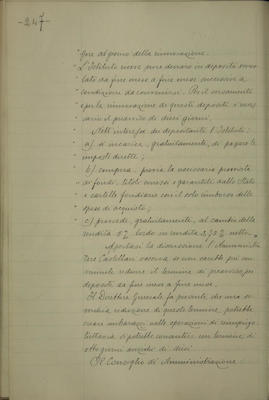 - 247 -
" fino al giorno della rinnovazione.
" L'Istituto riceve pure denaro in deposito vinco
" lato da fine mese a fine mese successivo a
" condizioni da convenirsi. Per il versamento
" e per la rinnovazione di questi depositi è neces
" sario il preavviso di dieci giorni.
" Nell'interesse dei depositanti l'Istituto:
" a) s'incarica, gratuitamente, di pagare le
" imposte dirette;
" b) compera, previa la necessaria provvista
" di fondi, titoli emessi o garantiti dallo Stato
" e cartelle fondiarie con il solo rimborso delle
" spese di acquisto;
" c) procede, gratuitamente, al cambio della
" rendita 5% lordo in rendita 3,50% netto. "
Apertasi la discussione l'Amministra
tore Castellani osserva se non sarebbe più con
veniente ridurre il termine di preavviso pei
depositi da fine mese a fine mese.
Il Direttore Generale fa presente che una so
verchia riduzione di questo termine, potrebbe
creare imbarazzi nelle operazioni di reimpiego
tuttavia si potrebbe consentire un termine di
otto giorni anziché di dieci.
Il Consiglio di Amministrazione